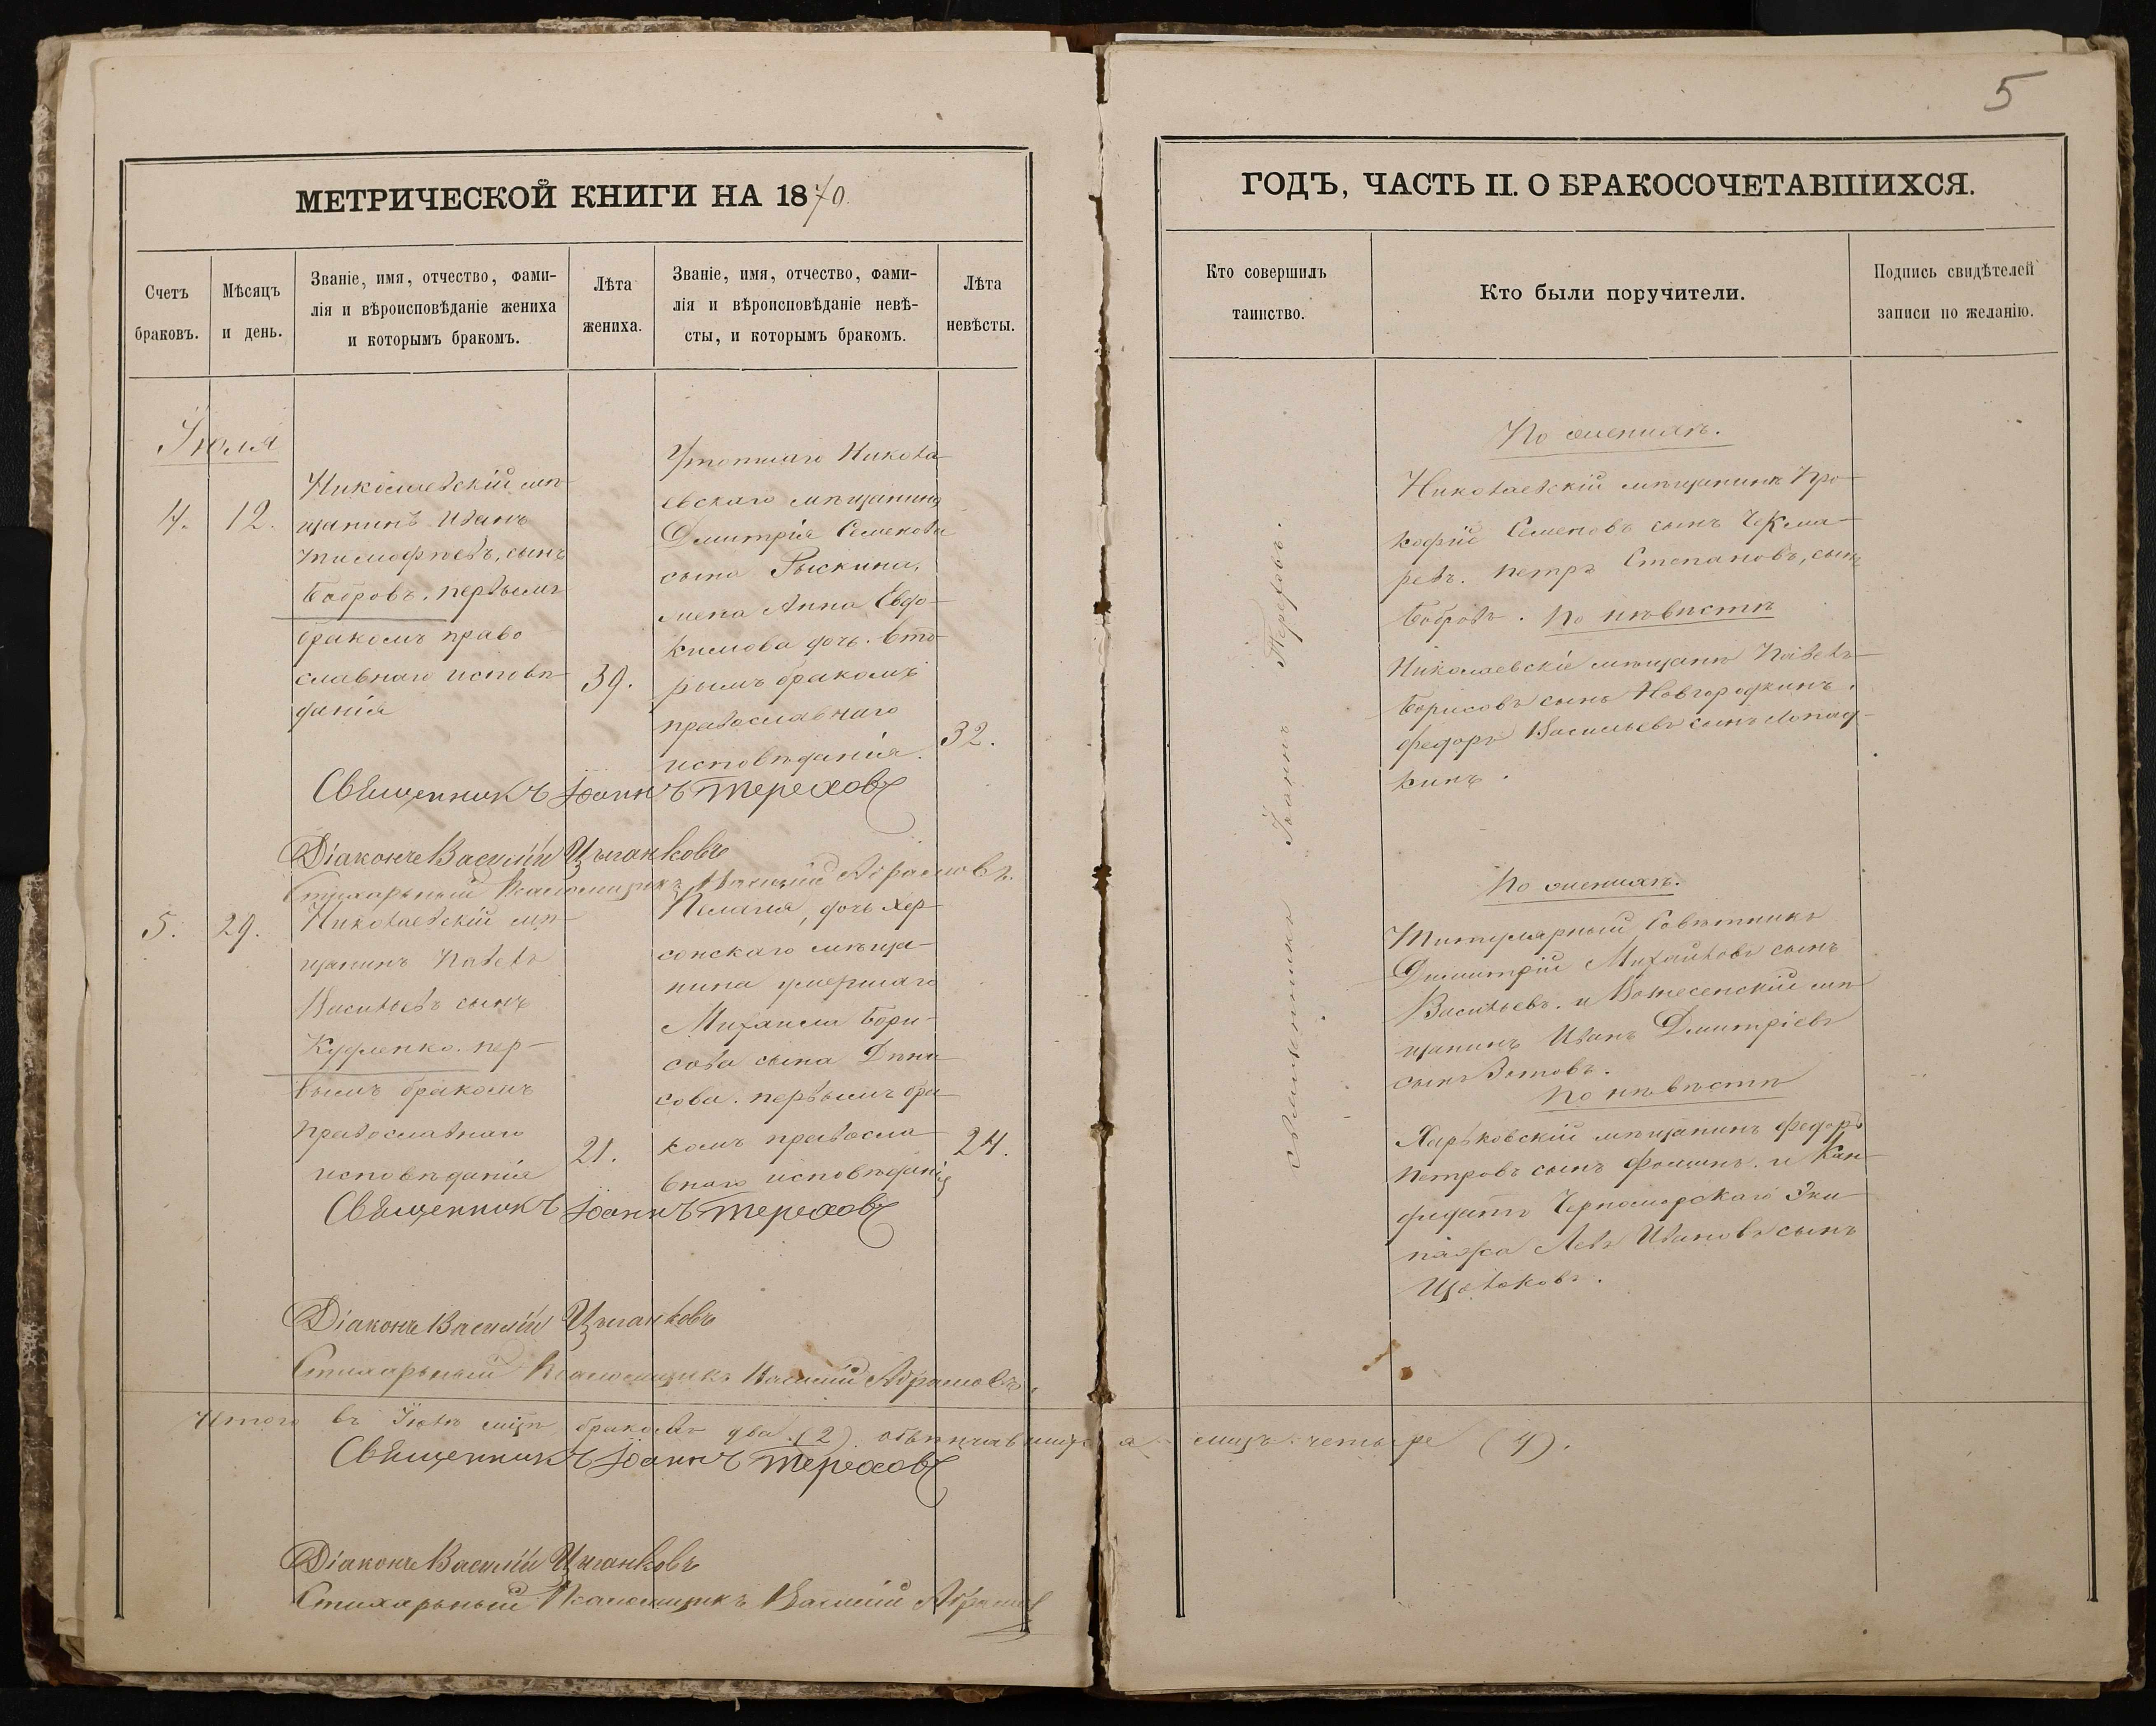 5
МЕТРИЧЕСКОЙ КНИГИ НА 1870.
ГОДЪ, ЧАСТЬ II. О БРАКОСОЧЕТАВШИХСЯ.
Счетъ
браковъ.
Мѣсяцъ
и день.
Званіе, имя, отчество, фами-
лія и вѣроисповѣданіе жениха
и которымъ бракомъ.
Лѣта
жениха.
Званіе, имя, отчество, фами-
лія и вѣроисповѣданіе невѣ-
сты, и которымъ бракомъ.
Лѣта
невѣсты.
Кто совершилъ
таинство.
Кто были поручители.
Подпись свидѣтелей
записи по желанію.
Іюля
4.
12.
Николаевскій мѣ-
щанинъ Иванъ
Тимофѣевъ, сынъ
Бобровъ. первымъ
бракомъ право
славнаго исповѣ-
данія
39.
Утопшаго Никола-
евскаго мѣщанина
Димитрія Семенова
сына Рыскина,
жена Анна Евдо-
кимова дочь. вто-
рымъ бракомъ
православнаго
исповѣданія.
32.
Священникъ Іоаннъ Тереховъ
По женихѣ.
Николаевскій мѣщанинъ Про-
кофій Семеновъ сынъ Чекма-
ревъ. Петръ Степановъ, сынъ
Бобровъ. По невѣстѣ
Николаевскіе мѣщане Павелъ
Борисовъ сынъ Новгородкинъ.
Федоръ Васильевъ сынъ Лопад-
кинъ.
Священникъ Іоаннъ Тереховъ.
Діаконъ Василій Цыганковъ
Стихарный Псаломщикъ Василій Абрамовъ.
5.
29.
Николаевскій мѣ-
щанинъ Павелъ
Васильевъ сынъ
Кудленко. пер-
вымъ бракомъ
православнаго
исповѣданія
21.
Пелагія, дочь Хер-
сонскаго мѣща-
нина умершаго
Михаила Бори-
сова сына Дени-
сова. первымъ бра-
комъ правосла-
внаго исповѣданія
24.
Священникъ Іоаннъ Тереховъ
По женихѣ.
Титулярный Совѣтникъ
Димитрій Михайловъ сынъ
Васильевъ. и Вознесенскій мѣ
щанинъ Иванъ Дмитріевъ
сынъ Зотовъ.
По невѣстѣ
Харьковскій мѣщанинъ Федоръ
Петровъ сынъ Фоминъ. и Кан-
дидатъ Черноморскаго Эки-
пажа Левъ Ивановъ сынъ
Діаконъ Василій Цыганковъ
Стихарный Псаломщикъ Василій Абрамовъ.
Итого въ Іюлѣ мѣсцѣ браковъ два (2). обвѣнчавшихся лицъ четыре (4).
Священникъ Іоаннъ Тереховъ
Діаконъ Василій Цыганковъ
Стихарный Псаломщикъ Василій Абрамовъ